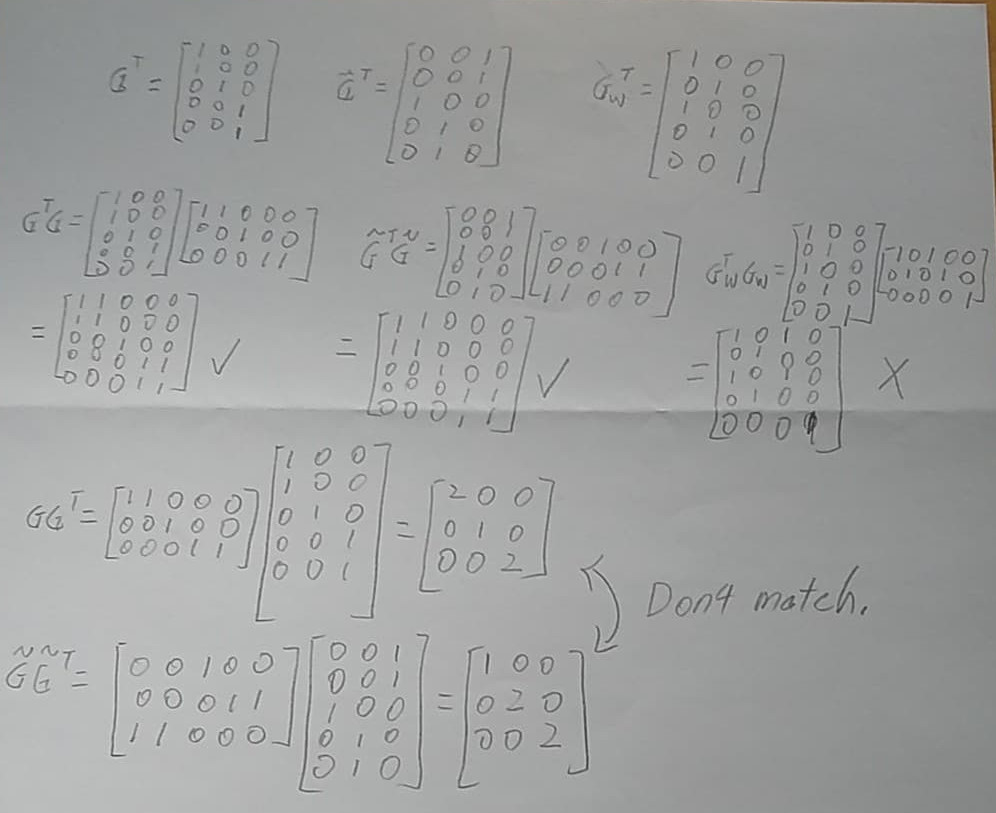 G^T = [1 0 0; 1 0 0; 0 1 0; 0 0 1; 0 0 1] G̃^T = [0 0 1; 0 0 1; 1 0 0; 0 1 0; 0 1 0] G_W^T = [1 0 0; 0 1 0; 1 0 0; 0 1 0; 0 0 1]
G^T G = [1 0 0; 1 0 0; 0 1 0; 0 0 1; 0 0 1] [1 1 0 0 0; 0 0 1 0 0; 0 0 0 1 1] G̃^T G̃ = [0 0 1; 0 0 1; 1 0 0; 0 1 0; 0 1 0] [0 0 1 0 0; 0 0 0 1 1; 1 1 0 0 0] G_W^T G_W = [1 0 0; 0 1 0; 1 0 0; 0 1 0; 0 0 1] [1 0 1 0 0; 0 1 0 1 0; 0 0 0 0 1]
= [1 1 0 0 0; 1 1 0 0 0; 0 0 1 0 0; 0 0 0 1 1; 0 0 0 1 1] ✓ = [1 1 0 0 0; 1 1 0 0 0; 0 0 1 0 0; 0 0 0 1 1; 0 0 0 1 1] ✓ = [1 0 1 0; 0 1 0 0; 1 0 1 0; 0 1 0 0; 0 0 0 1] X
GG^T = [1 1 0 0 0; 0 0 1 0 0; 0 0 0 1 1] [1 0 0; 1 0 0; 0 1 0; 0 0 1; 0 0 1] = [2 0 0; 0 1 0; 0 0 2]
Don4 match.
G̃G̃^T = [0 0 1 0 0; 0 0 0 1 1; 1 1 0 0 0] [0 0 1; 0 0 1; 1 0 0; 0 1 0; 0 1 0] = [1 0 0; 0 2 0; 0 0 2]